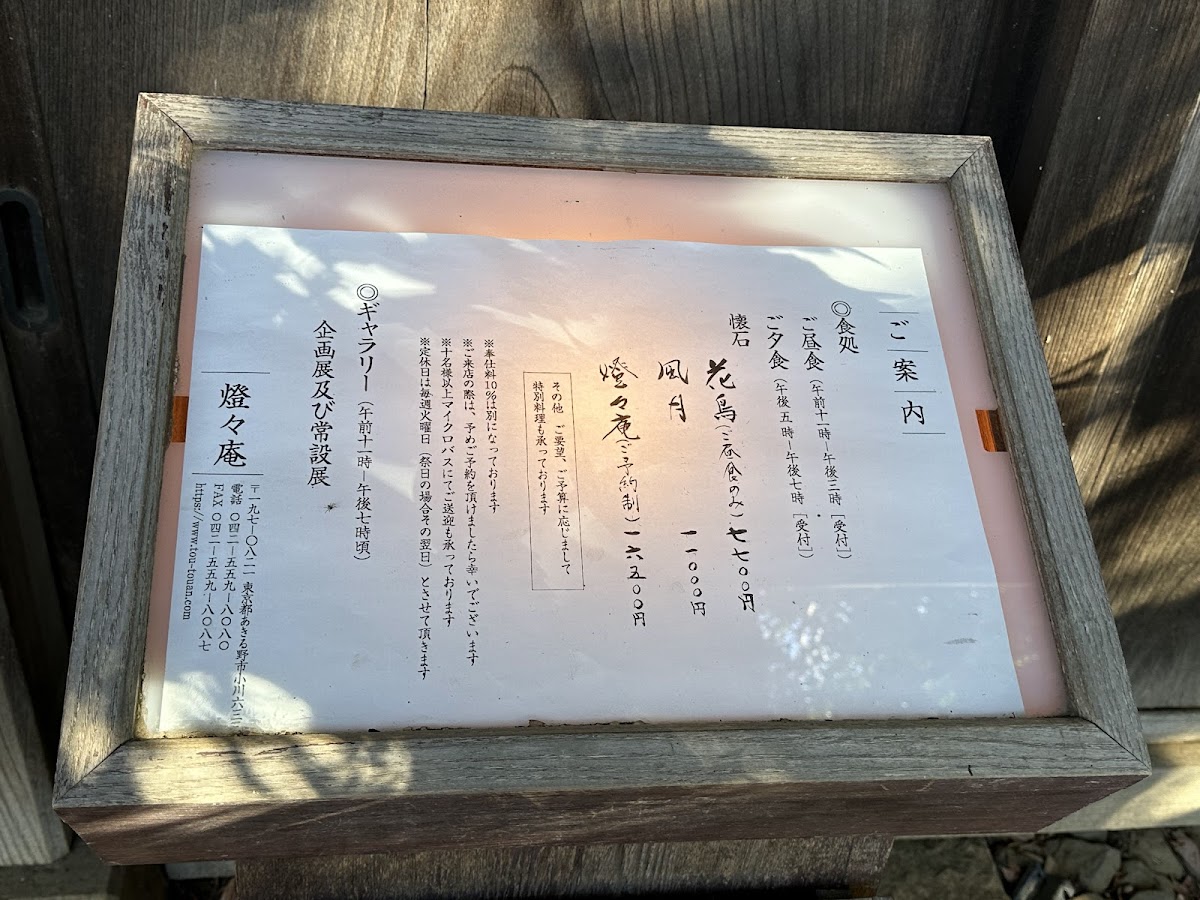 ご案内
◎食処
ご昼食（午前十一時〜午後三時［受付］）
ご夕食（午後五時〜午後七時［受付］）
懐石
花鳥（ご昼食のみ）七七〇〇円
風月 一一〇〇〇円
燈々庵（ご予約制）一六五〇〇円
その他 ご要望、ご予算に応じまして
特別料理も承っております
※奉仕料10%は別になっております
※ご来店の際は、予めご予約を頂けましたら幸いでございます
※十名様以上マイクロバスにてご送迎も承っております
※定休日は毎週火曜日（祭日の場合その翌日）とさせて頂きます
◎ギャラリー（午前十一時〜午後七時頃）
企画展及び常設展
燈々庵
〒一九七-〇八二二 東京都あきる野市小川六三
電話 〇四二-五五九-八〇八〇
FAX 〇四二-五五九-八〇八七
https://www.tou-touan.com